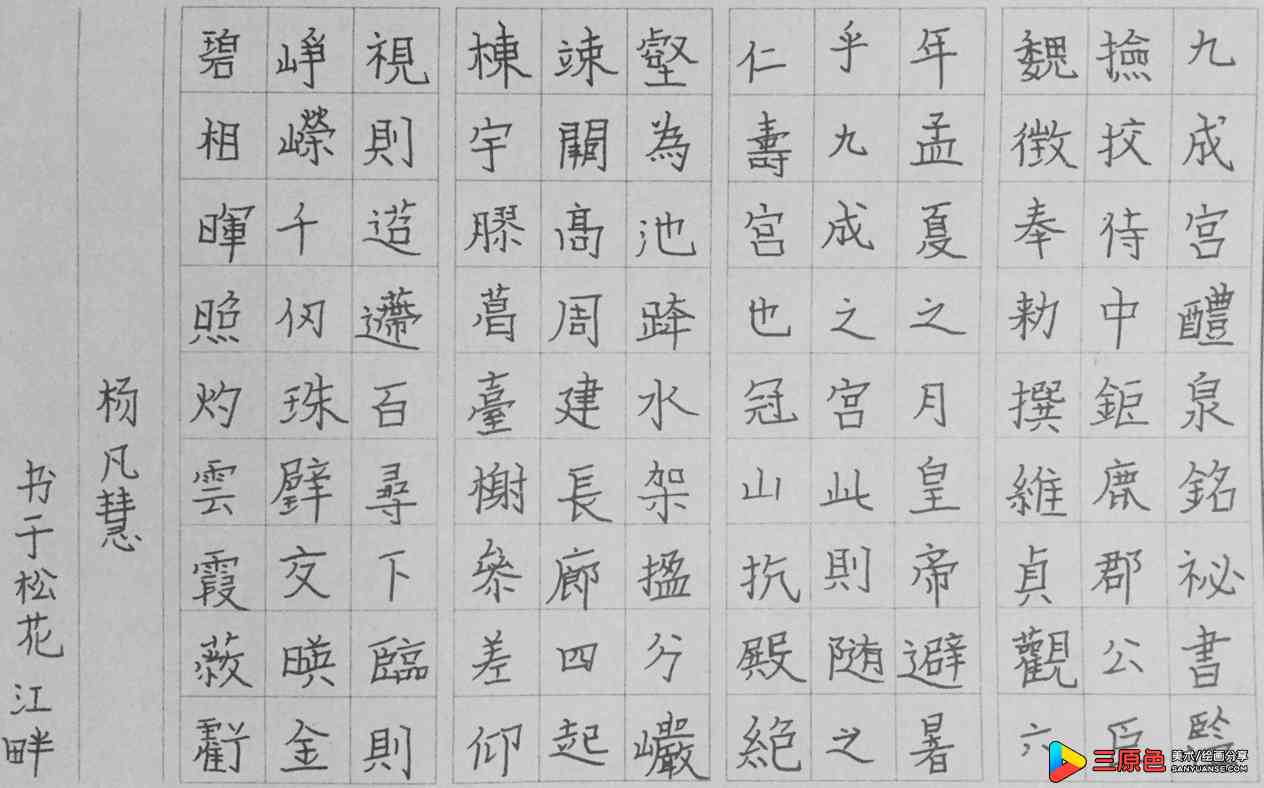 九成宮醴泉銘祕書監
撿挍侍中鉅鹿郡公臣
魏徴奉勑撰維貞觀六
年孟夏之月皇帝避暑
乎九成之宮此則随之
仁壽宮也冠山抗殿絕
壑為池跨水架楹分巖
竦闕髙周建長廊四起
棟宇膠葛臺榭叅差仰
視則迢遰百尋下臨則
崢嶸千仞珠璧交暎金
碧相暉照灼雲霞蔽虧
杨凡慧
书于松花江畔
三原色
美术/绘画分享
SANYUANSE.COM